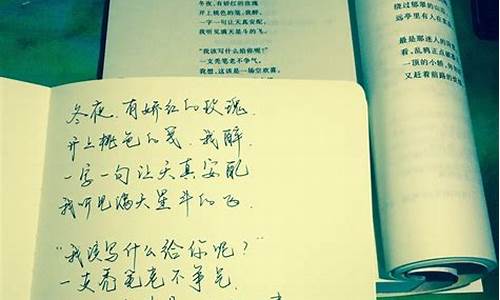 冬夜，有娇红的玫瑰
开上桃色的笺，我醉，
一字一句让天真安配，
我听见满天星斗的飞。
“我该写什么给你呢？”
一支秃笔老不争气，
我想，这该是一场空欢喜。
绕过郁翠的山
远亭里有人在
最是那迷人的
看，乱鸦正点破
一顶的小轿，
又赶着前路的
冬夜，有娇红的玫瑰，
开上桃色的笺，我醉，
一字一句让天真安配
我听见满天星斗的飞，
“我该写什么给你呢？”
一支秃笔老不争气，